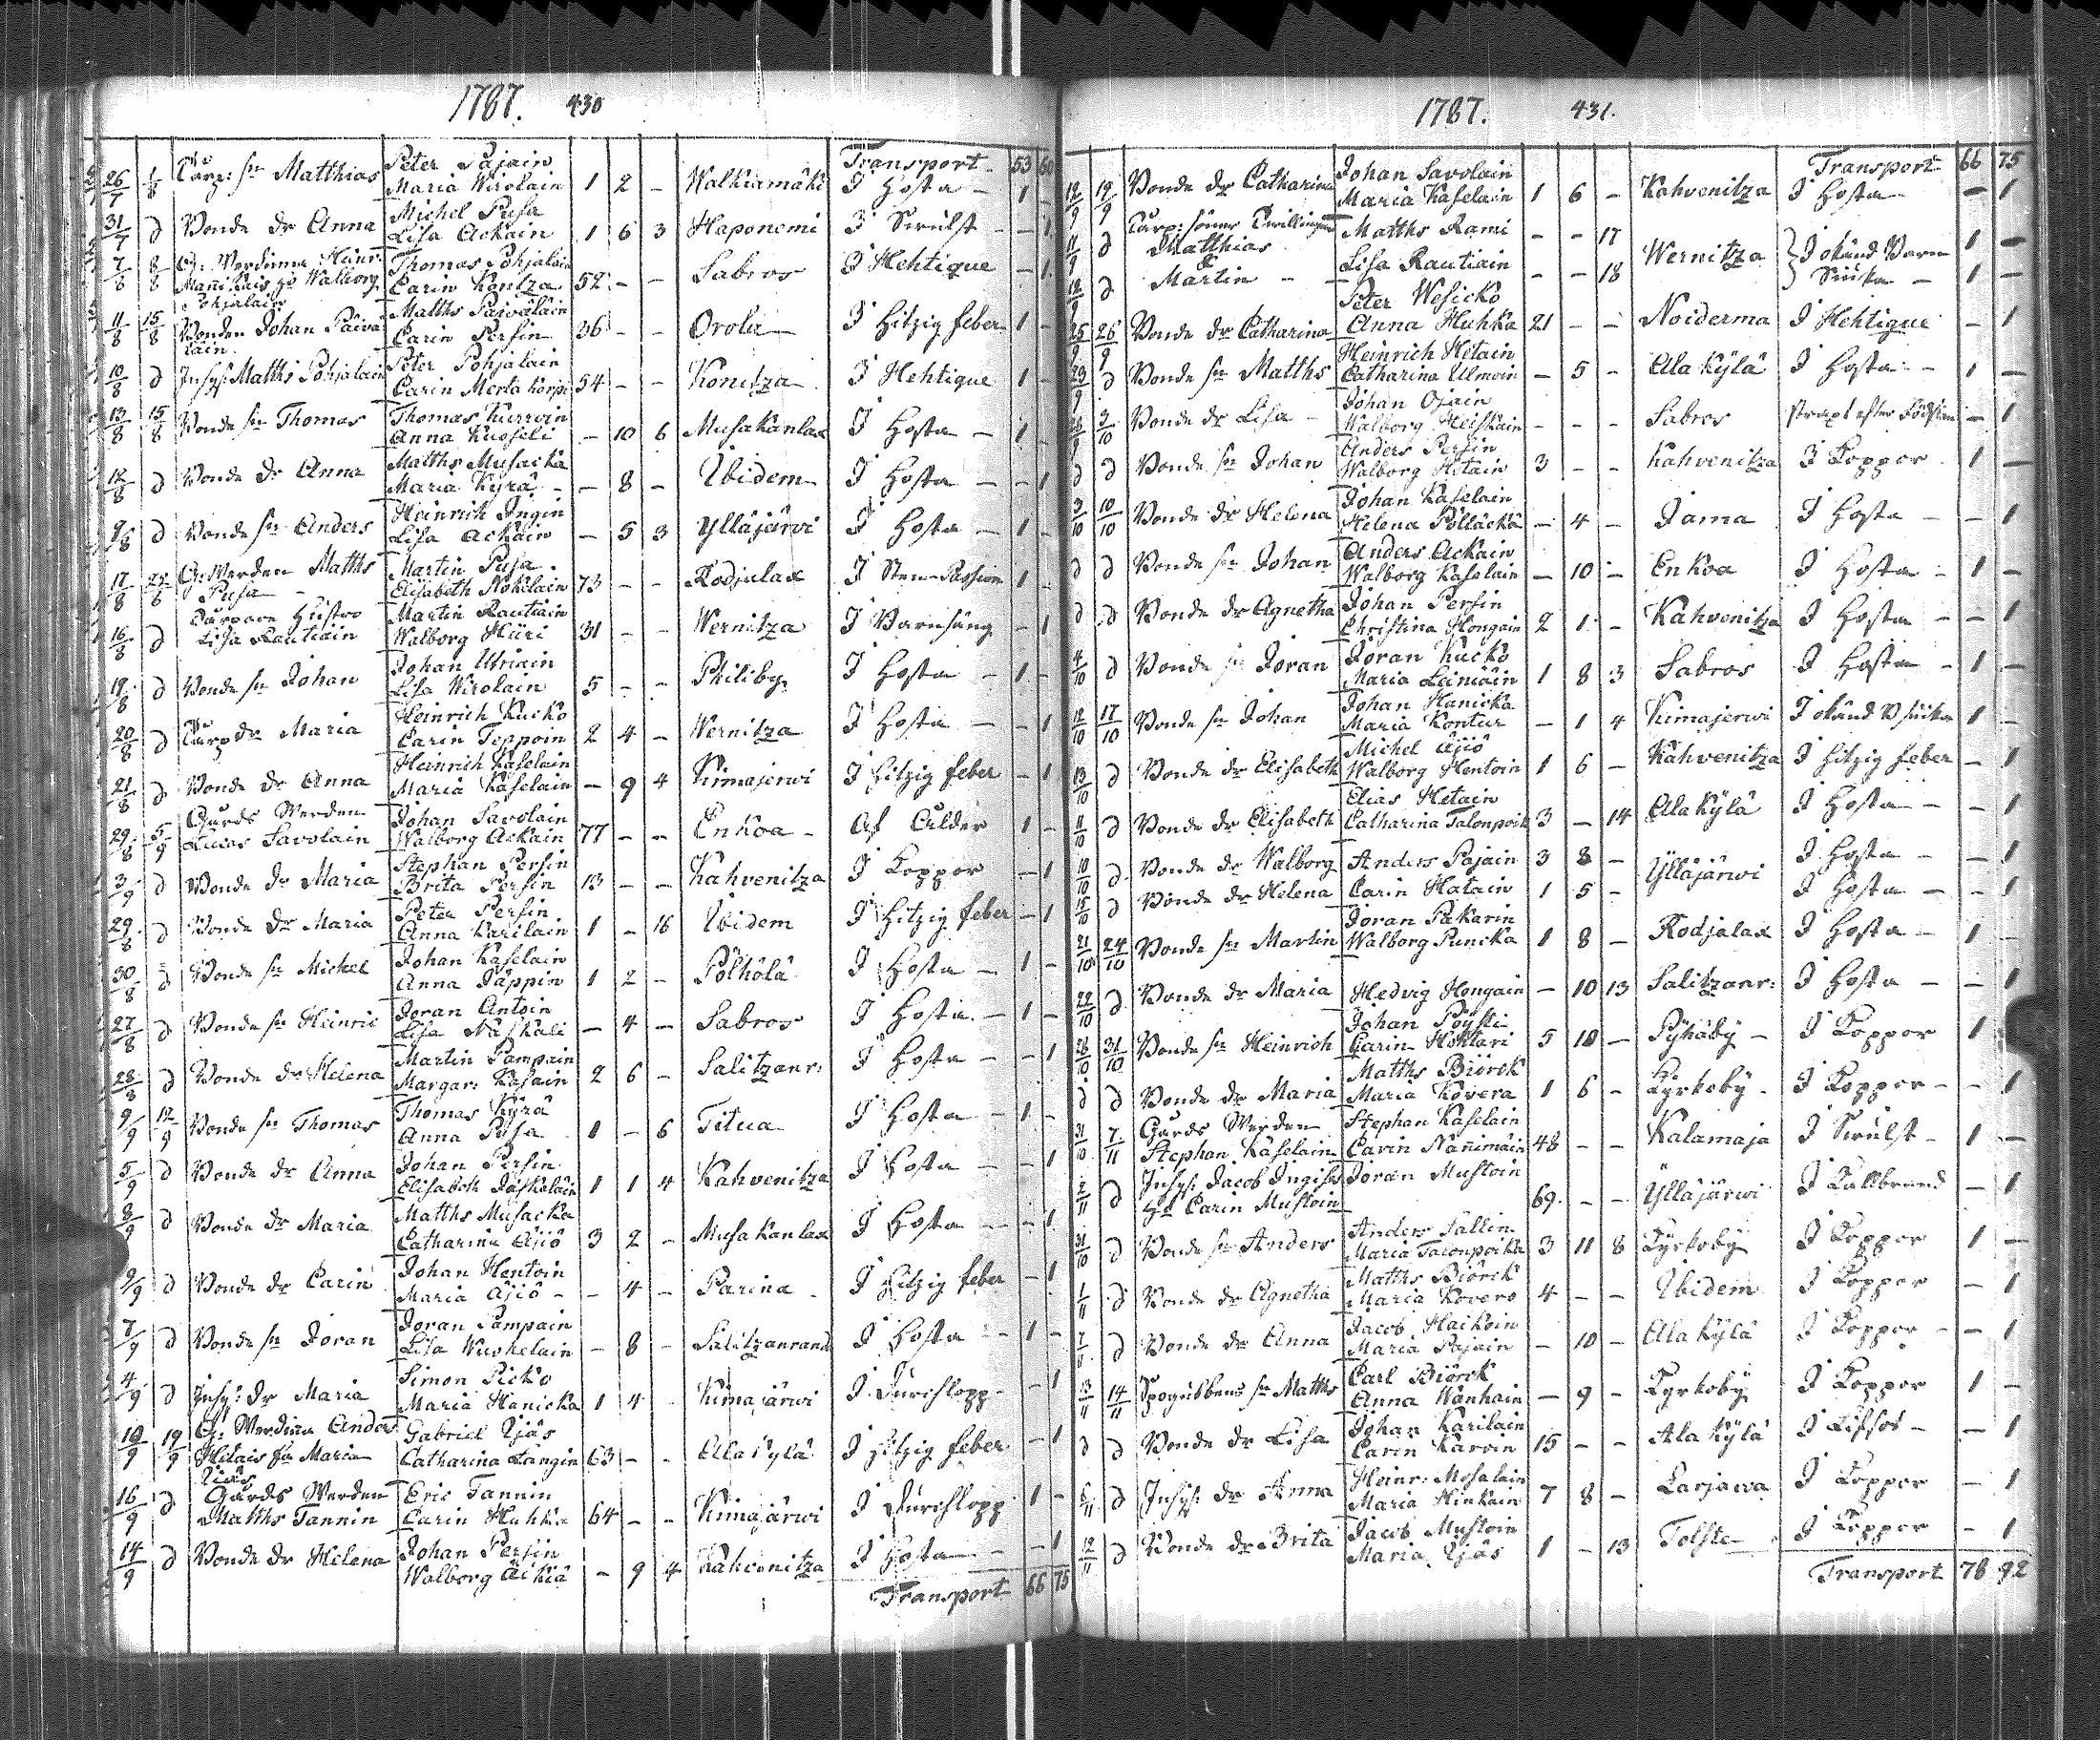 1787. 430
Transport 53 60
26/7 1/8 Torp: sn Matthias Peter Pajain
Maria Wirolain 1 2 - Walkiamäki I Hosta - 1 -
31/7 d Bonde dr Anna Michel Pusa
Lisa Ackain 1 6 3 Haponemi I Swulst - - 1
7/8 8/8 G: Werdinna Heinr: Thomas Pohjalain
Walborg Carin Kontza 52 - - Sabros I Hehtique - 1
Pohjalain
11/8 15/8 Bonden Johan Päivä Matths Paivälain
lain Carin Persin 36 - - Orola I Hitzig feber 1 -
10/8 d Inhys: Matths Pohjalain Peter Pohjalain
Carin Mertakorpi 54 - - Konitza I Hehtique 1 -
13/8 15/8 Bonde sn Thomas Thomas Kurwin
Anna Kuoseli - 10 6 Musakanlax I Hosta - 1 -
12/8 d Bonde dr Anna Matths Musacka
Maria Kyrä - - 8 - Ibidem I Hosta - - 1
9/8 d Bonde sn Anders Heinrich Ingin
Lisa Ackain - 5 3 Ylläjärvi I Hosta - 1 -
17/8 G: Werden Matths Martin Pusa
Pusa Elisabeth Nokelain 73 - - Rodjalax I Sten-Passion 1 -
16/8 d Torpare Hustro Martin Rautiain
Lisa Rautiain Walborg Hüri 31 - - Wernitza I Barnsäng - 1
19/8 d Bonde sn Johan Johan Utriain
Lisa Wirolain 5 - - Philiby I Hosta - 1 -
20/8 d Torp dr Maria Heinrich Kucko
Carin Teppoin 2 4 - Wernitza I Hosta - - 1
21/8 d Bonde dr Anna Heinrich Kaselain
Maria Kaselain - 9 4 Kimajerwi I Hitzig feber - 1
29/8 5/9 Gårds Werden Johan Savolain
Lucas Savolain Walborg Ackain 77 - - Enkoa - Af Ålder 1 -
3/9 d Bonde dr Maria Stephan Persin
Brita Persin 13 - - Kahvenitza I Koppor - 1
29/8 d Bonde dr Maria Peter Persin
Anna Karilain 1 - 16 Ibidem I Hitzig feber - 1
30/8 d Bonde sn Michel Johan Kaselain
Anna Jäppin 1 2 - Pölhölä I Hosta - 1 -
27/8 d Bonde sn Heinric Joran Antoin
Lisa Naskali - 4 - Sabros I Hosta - 1 -
28/8 d Bonde dr Helena Martin Pampain
Margar: Kasain 2 6 - Salitzanr: I Hosta - - 1
9/9 12/9 Bonde sn Thomas Thomas Kyrä
Anna Pusa 1 - 6 Titua I Hosta - 1 -
5/9 d Bonde dr Anna Johan Persin
Elisabeth Jaskelain 1 1 4 Kahvenitza I Hosta - - 1
8/9 d Bonde dr Maria Matths Musacka
Catharina Äjiö 3 2 - Musakanlax I Hosta - - 1
9/9 d Bonde dr Carin Johan Hentoin
Maria Äjiö - - 4 - Parina I Hitzig feber - 1
7/9 d Bonde sn Joran Joran Pampain
Lisa - 8 - Salitzanrand I Hosta - 1 -
4/9 d Inhys: dr Maria Simon Picko
Maria Hanicka 1 4 - Kimajärwi I Durchlopp - 1
10/9 19/9 G: Werdina Anders Gabriel Ijäs
Hetais fru Maria Catharina Längin 63 - - Ala Kylä I Hitzig feber - 1
Ijäs
16/9 d Gårds Werden Eric Tannin
Matths Tannin Carin Huhka 64 - - Kimajärwi I Durchlopp 1 -
14/9 d Bonde dr Helena Johan Persin
Walborg Äikiä - 9 4 Kahvenitza I Hosta - - 1
Transport 66 75
1787. 431.
Transport 66 75
12/9 19/9 Bonde dr Catharina Johan Savolain
Maria Kaselain 1 6 - Kahvenitza I Hosta - - 1
11/9 d Torp: söner Twillingar Matths Rami
Matthias - - 17 Wernitza I okänd Barn 1 -
12/9 d Martin - Lisa Rautiain - - 18 Siuka - 1 -
25/9 26/9 Bonde dr Catharina Peter Wesicko
Anna Huhka 21 - - Noiderma I Hehtique - 1
29/9 d Bonde sn Matths Heinrich Hetain
Catharina Ulmoin - 5 - Ala Kylä I Hosta - 1 -
3/10 Bonde dr Lisa - Johan Ojain
Walborg Heiskain - - - Sabros strapt efter Födslen - 1
d d Bonde sn Johan Anders Persin
Walborg Hetain 3 - - Kahvenitza I Koppor 1 -
3/10 10/10 Bonde dr Helena Johan Kaselain
Helena Pölläckä - 4 - Jama I Hosta - - 1
d d Bonde sn Johan Anders Ackain
Walborg Kaselain - 10 - Enkoa I Hosta - 1 -
d d Bonde dr Agnetha Johan Persin
Christina Hongain 2 1 - Kahvenitza I Hosta - - 1
4/10 d Bonde sn Joran Joran Kucko
Maria Leimäin 1 8 3 Sabros I Hosta - 1 -
12/10 17/10 Bonde sn Johan Johan Hanicka
Maria Kontur - 1 4 Kimajerwi I okänd B siuka 1 -
13/10 d Bonde dr Elisabeth Michel Äjiö
Walborg Hentoin 1 6 - Kahvenitza I Hitzig feber - 1
11/10 d Bonde dr Elisabeth Elias Hetain
Catharina Talonpoik 3 - 14 Ala Kylä I Hosta - - 1
10/10 d Bonde dr Walborg Anders Pajain 3 8 - Ylläjärwi I Hosta - - 1
15/10 d Bonde dr Helena Carin Hatain 1 5 - I Hosta - - 1
21/10 24/10 Bonde sn Martin Joran Pakarin
Walborg Puncka 1 8 - Rodjalax I Hosta - 1 -
22/10 d Bonde dr Maria Hedvig Hongain - 10 13 Salitzanr: I Hosta - - 1
26/10 31/10 Bonde sn Heinrich Johan Pöysti
Carin Hohtari 5 10 - Pyhäby - I Koppor 1
d d Bonde dr Maria Matths Biörck
Maria Kovera 1 6 - Kyrkoby - I Koppor - - 1
31/10 7/11 Gårds Werden Stephan Kaselain
Stephan Kaselain Carin Nänimäin 48 - - Kalamaja I Swulst - 1 -
2/11 d Inhys: Jacob Ingis Joran Mustoin
Carin Mustoin 69 - - Ylläjärwi I Kallbrand - 1
31/10 d Bonde sn Anders Anders Sallin
Maria Talonpoika 3 11 8 Kyrkoby I Koppor 1 -
1/11 d Bonde dr Agnetha Matths Biörck
Maria Kovero 4 - - Ibidem I Koppor - 1
7/11 d Bonde dr Anna Jacob Haikoin
Maria Pajain - 10 - Ala Kylä I Koppor - - 1
13/11 14/11 Spogubbens sn Matths Carl Biörck
Anna Wanhain - 9 - Kyrkoby I Koppor 1 -
d d Bonde dr Lisa Johan Karilain
Carin Karvin 15 - - Ala Kylä I Lifsot - - 1
6/11 d Inhys: dr Anna Heinr: Mosalain
Maria Hinkain 7 8 - Larjawa I Koppor - 1
12/11 d Bonde dr Brita Jacob Mustoin
Maria Ijäs 1 - 13 Tolste I Koppor - 1
Transport 78 92